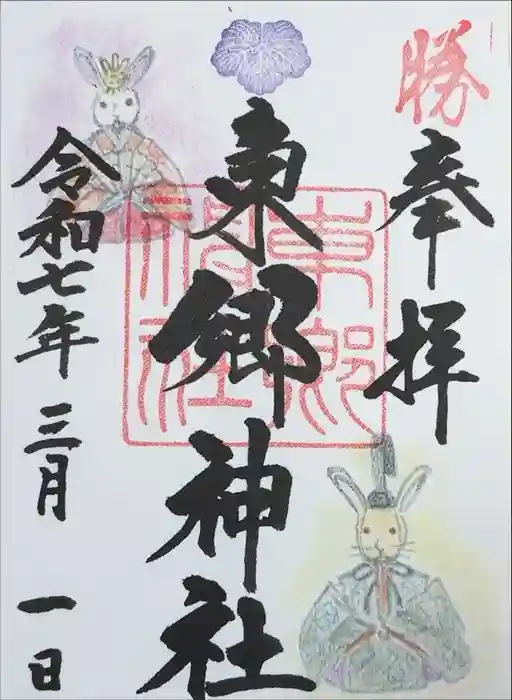 勝
奉拝
東郷神社
東郷神社
令和七年三月一日